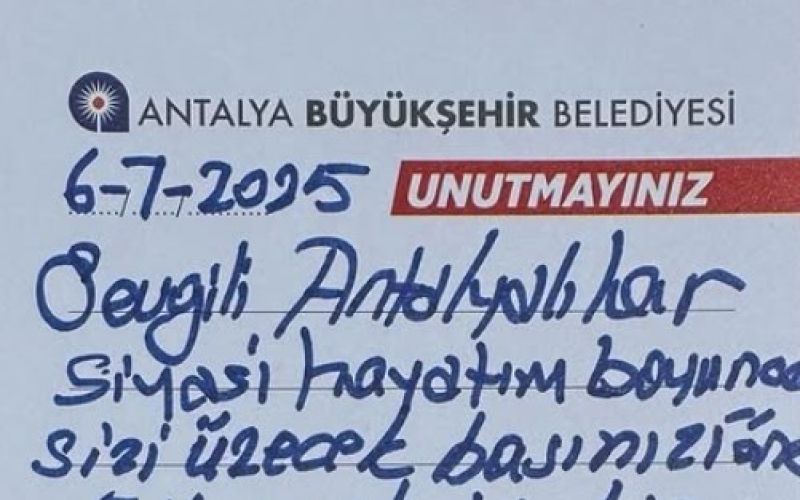 ANTALYA BÜYÜKŞEHİR BELEDİYESİ
6-7-2025 UNUTMAYINIZ
Sevgili Antalyalılar
siyasi hayatım boyunca
sizi üzecek başınızı öne